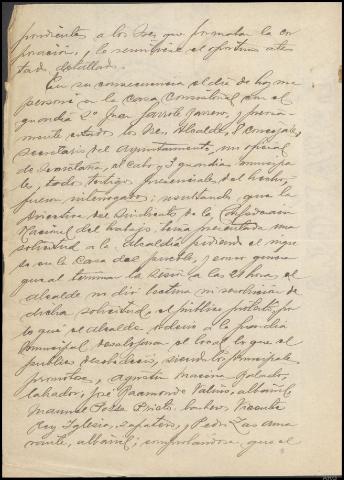 pondientes a los Ses que formaban la cor
poración, y le remitiese el oportuno ates
tado detallado.
En su consecuencia el dia de hoy me
persone en la Casa Consistorial con el
guardia 2º Juan Garrote y previa
mente citados los Ses, Alcalde, Concejales,
secretario del Ayuntamiento, un oficial
de Secretaria, el Cabo y guardias municipa
les, todos testigos presenciales del hecho,
fueron interrogados; resultando, que la
Directiva del Sindicato de la Confederacion
Nacional del trabajo, tenia presentada una
solicitud a la Alcaldia pidiendo el ingre
so en la casa del pueblo, y como quiera
que al terminar la sesion a las 2 hora, el
alcalde ni dio lectura ni resolucion de
dicha solicitud, el publico protestó, por
lo que el alcalde ordenó a la guardia
municipal desalojara el local, lo que el
publico desobedeció, siendo los principales
promotores, Agustin
labrador, José Raimonde Valiño, albañil,
Manuel Prieto, Vicente
Rey Iglesia, zapatero, y Pedro Las
albañil; comprobandose, que el